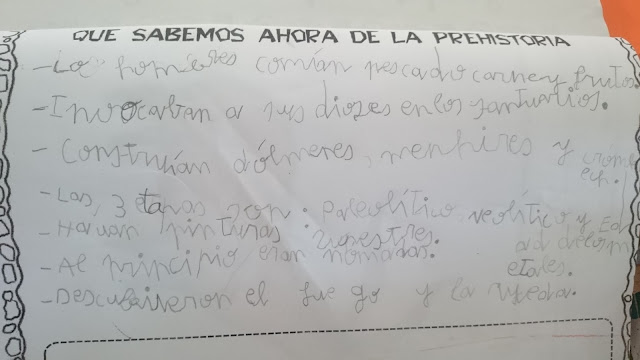 QUE SABEMOS AHORA DE LA PREHISTORIA
-Los homбres comían pescado carne y frutos.
-Invocaban a sus diozes en los santuarios.
- Construían dólmenes, menhires y cróml
ech.
-Las, 3 etapas son: paleolítico, neolítico y Ed
ad delosm
etales.
-Hacian pinturas rupestres.
-Al principio eran nomadas.
-Descubrieron el fuego y la rueda.